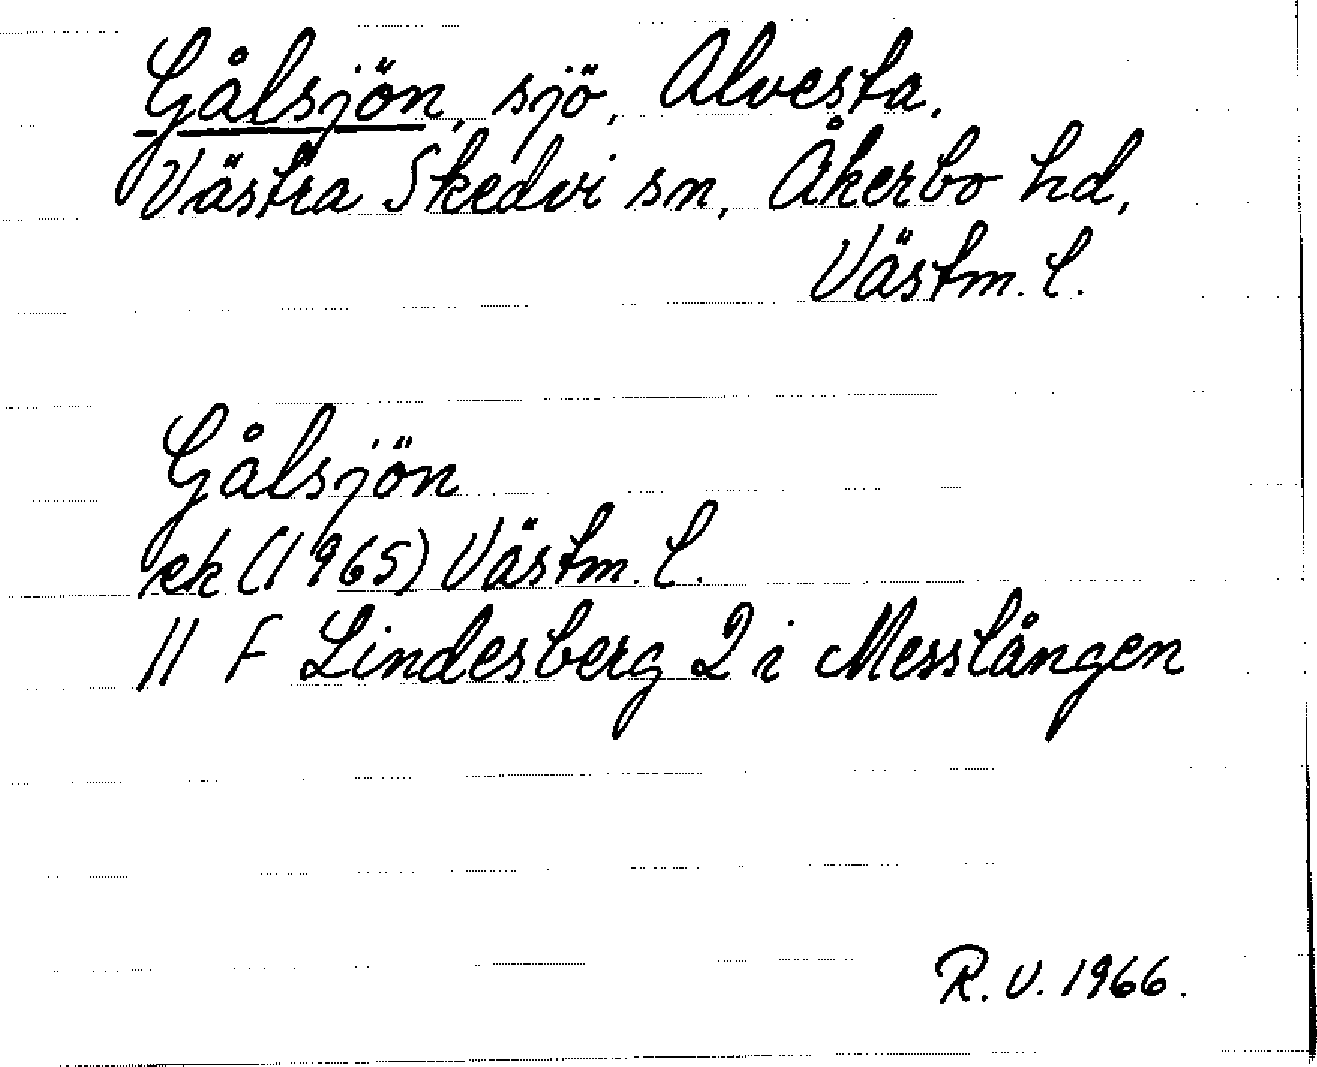 Gålsjön, sjö, Alvesta,
Västra Skedvi sn, Åkerbo hd,
Västm. l.
Gålsjön
ek (1965) Västm. l.
11 F Lindesberg 2 i Messlången
R. V. 1966.